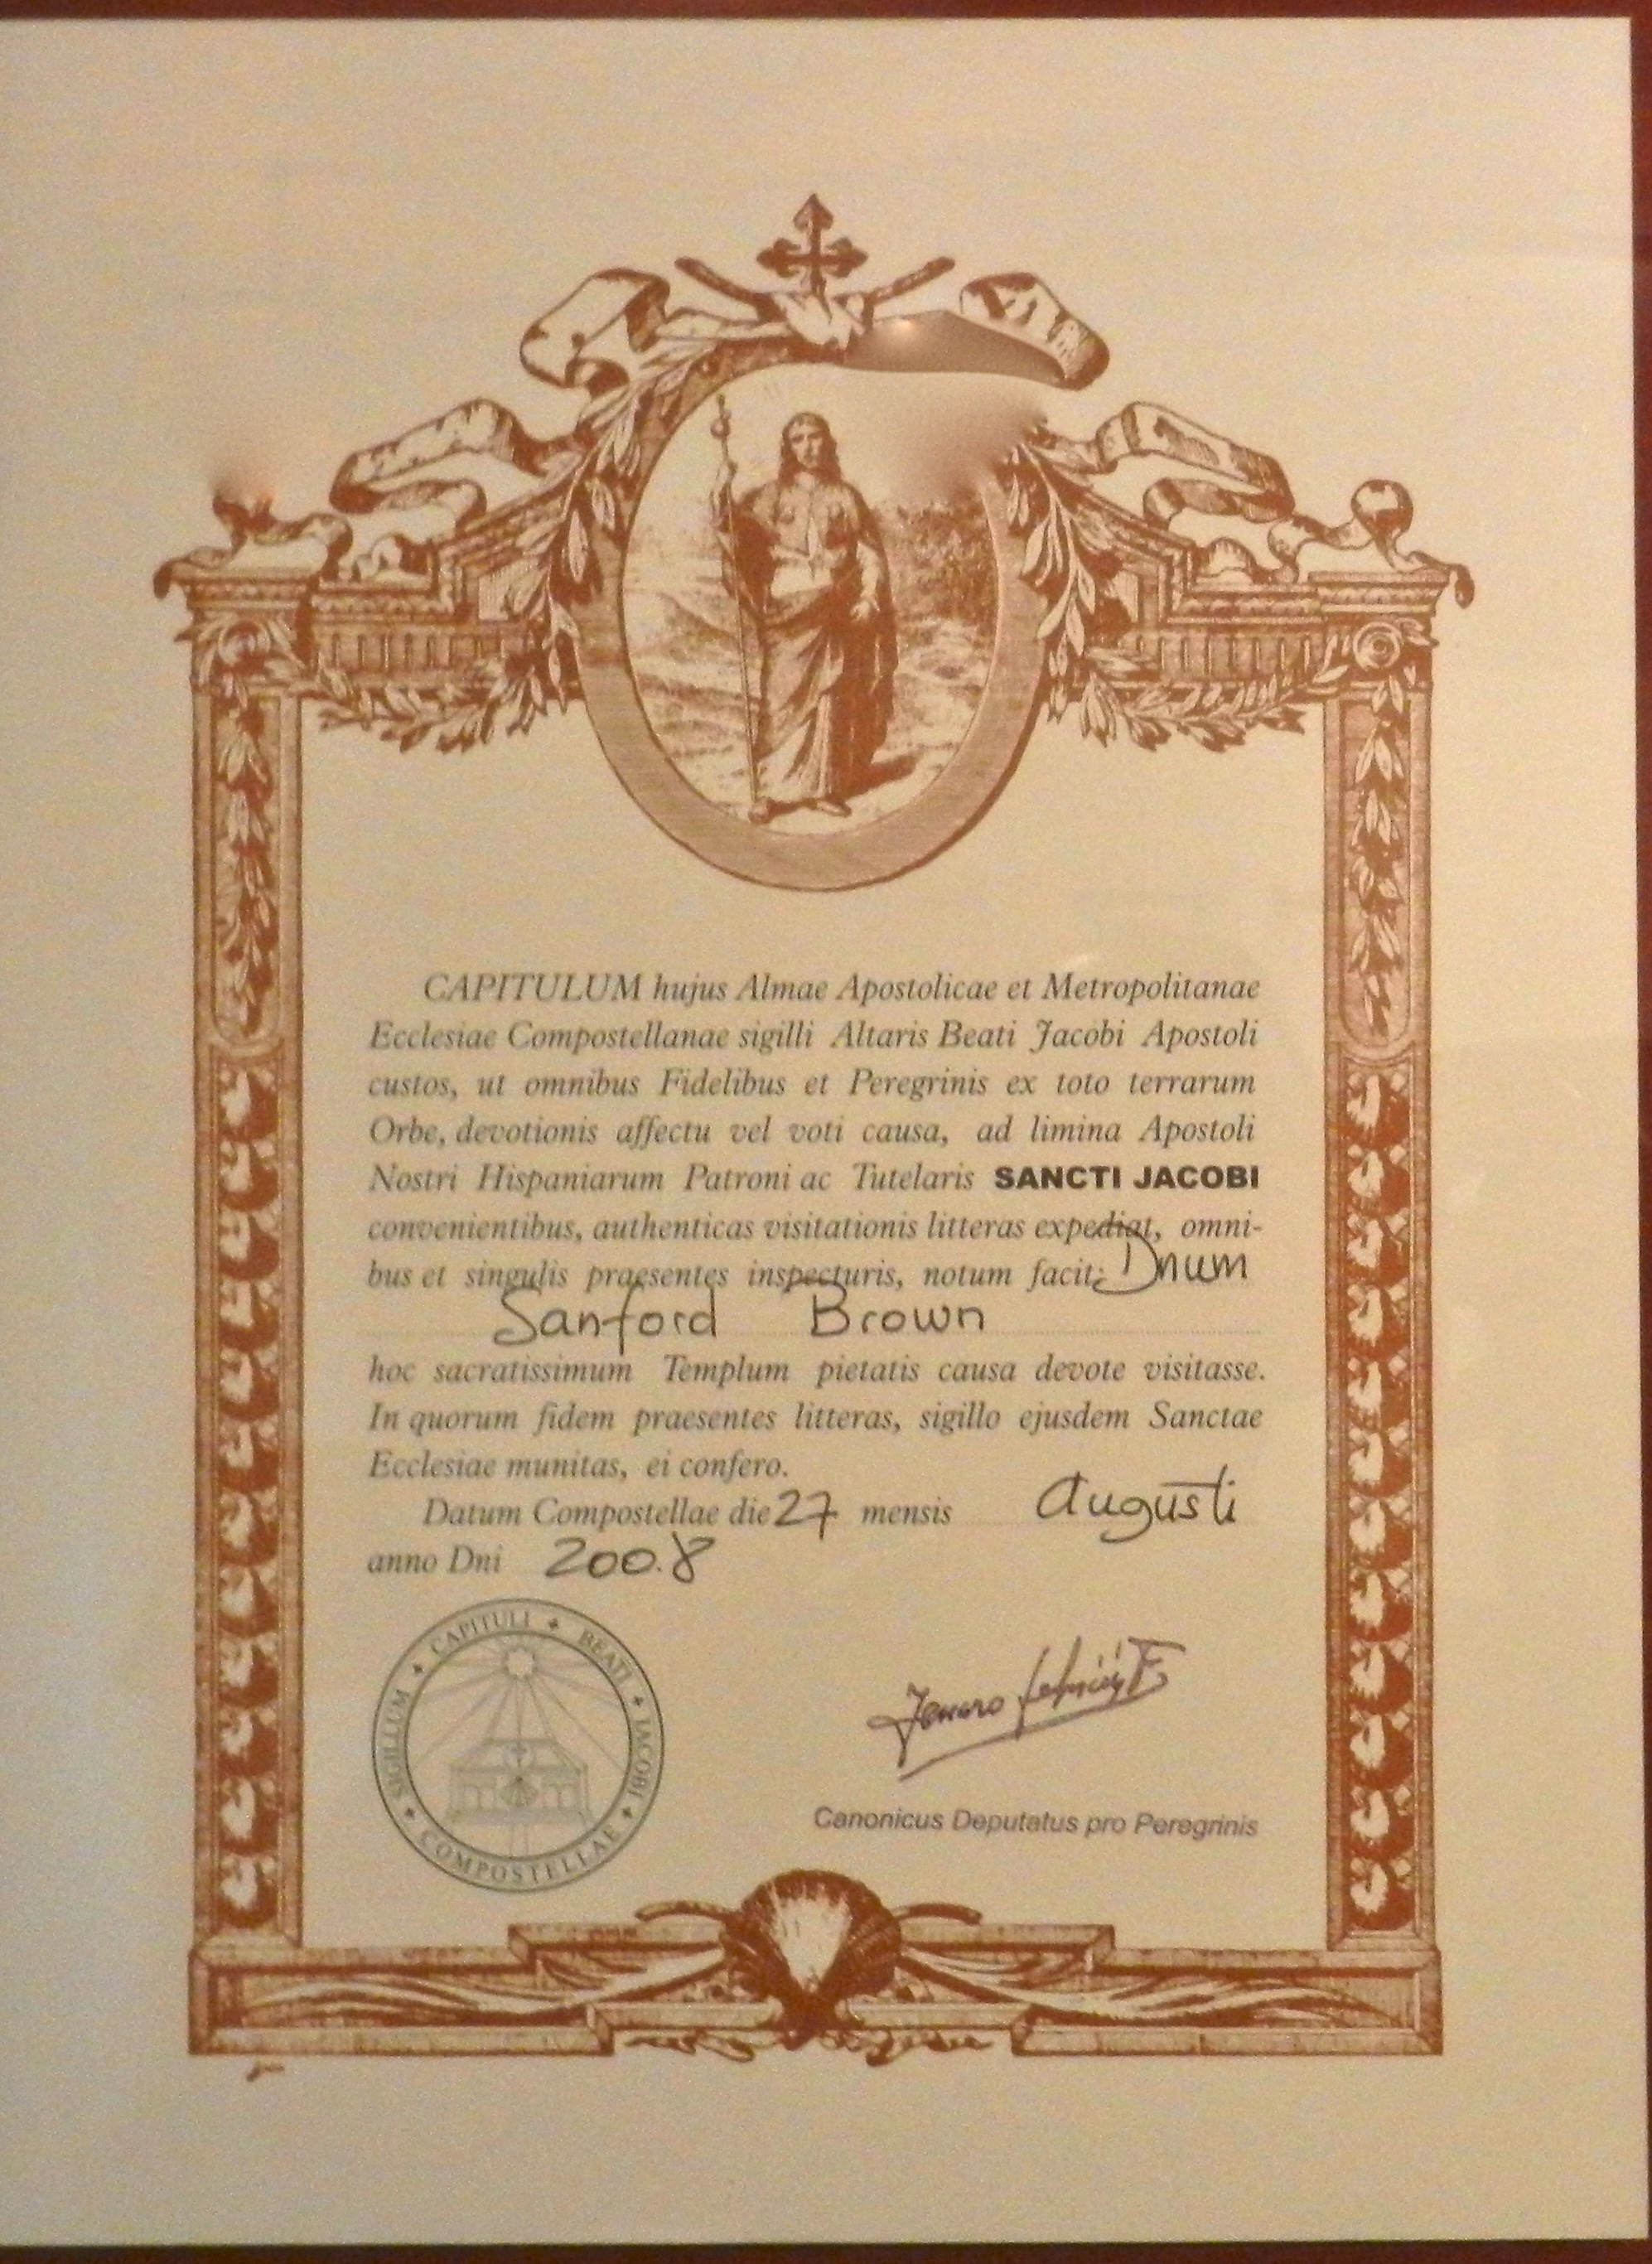 CAPITULUM hujus Almae Apostolicae et Metropolitanae
Ecclesiae Compostellanae sigilli Altaris Beati Jacobi Apostoli
custos, ut omnibus Fidelibus et Peregrinis ex toto terrarum
Orbe, devotionis affectu vel voti causa, ad limina Apostoli
Nostri Hispaniarum Patroni ac Tutelaris SANCTI JACOBI
convenientibus, authenticas visitationis litteras expediat, omni-
bus et singulis praesentes inspecturis, notum facit: Dnum
Sanford Brown
hoc sacratissimum Templum pietatis causa devote visitasse.
In quorum fidem praesentes litteras, sigillo ejusdem Sanctae
Ecclesiae munitas, ei confero.
Datum Compostellae die 27 mensis Augusti
anno Dni 200.8
SIGILLUM CAPITULI BEATI IACOBI COMPOSTELLAE
Canonicus Deputatus pro Peregrinis